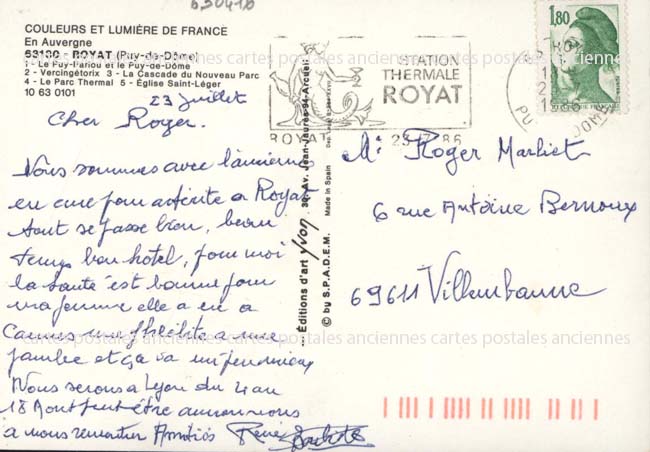 630410
COULEURS ET LUMIÈRE DE FRANCE
En Auvergne
63130 - ROYAT (Puy-de-Dôme)
1 - Le Puy-Pariou et le Puy-de-Dôme
2 - Vercingétorix 3 - La Cascade du Nouveau Parc
4 - Le Parc Thermal 5 - Église Saint-Léger
10 63 0101
23 juillet
Cher Roger.
Nous sommes avec
en cure pour artérite a Royat
tout se passe bien, beau
temps bon hotel, pour moi
la santé est bonne pour
ma femme elle a eu à
Cannes une phlébite a une
jambe et ça va
Nous serons a Lyon du 4 au
18 Aout peut être aurons nous
a nous rencontrer Amitiés René
Editions d'art Yvon 30, Av. Jean-Jaurès 94-Arcueil
© by S.P.A.D.E.M. Made in Spain
STATION
THERMALE
ROYAT
ROYAT 23-7-86
1,80
Mr Roger Marliet
6 rue Antoine Bernoux
69611 Villeurbanne
cartes postales anciennes cartes postales anciennes cartes postales anciennes